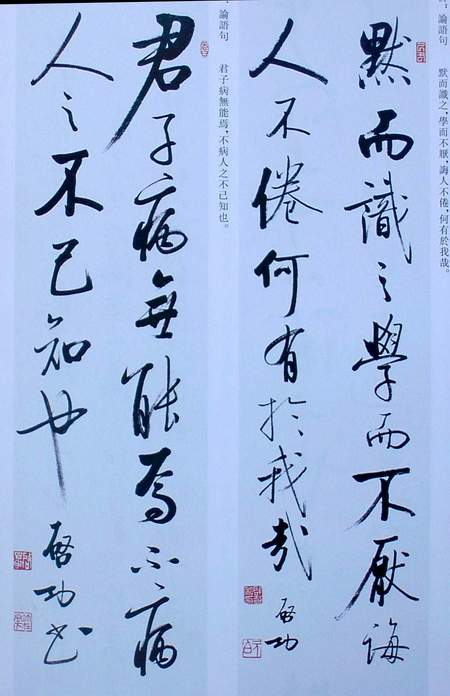 論語句　默而識之，學而不厭，誨人不倦，何有於我哉。
默而識之學而不厭誨
人不倦何有於我哉 啓功
論語句　君子病無能焉，不病人之不己知也。
君子病無能焉不病
人之不己知也 啓功書